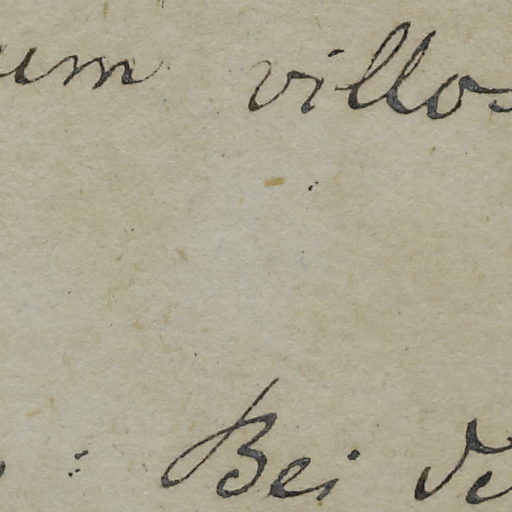 um villos
: Bei de